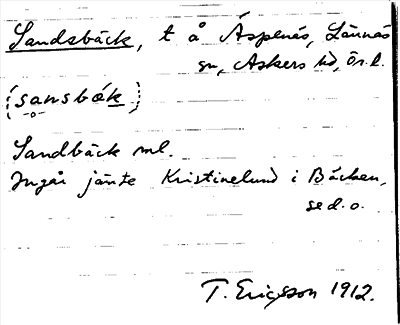 Sandsbäck, t å Äspenäs, Lännäs
sn, Askers hd, Ör. l.
(sansbäk)
Sandbäck ml.
Ingår jämte Kristinelund i Bäcken,
se d. o.
T. Ericsson 1912.